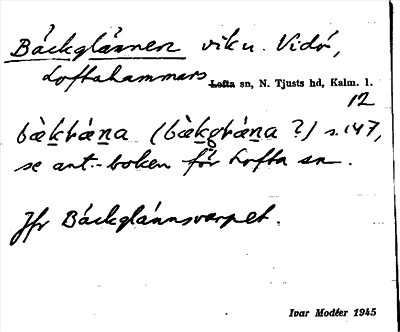 Bäckglännen vik u. Vidö,
Loftahammars
Lofta sn, N. Tjusts hd, Kalm. l.
12
(bæ̀kgræna ?) s. 147,
se ant.-boken för Lofta sn.
Jfr Bäckglännsvarpet.
Ivar Modéer 1945